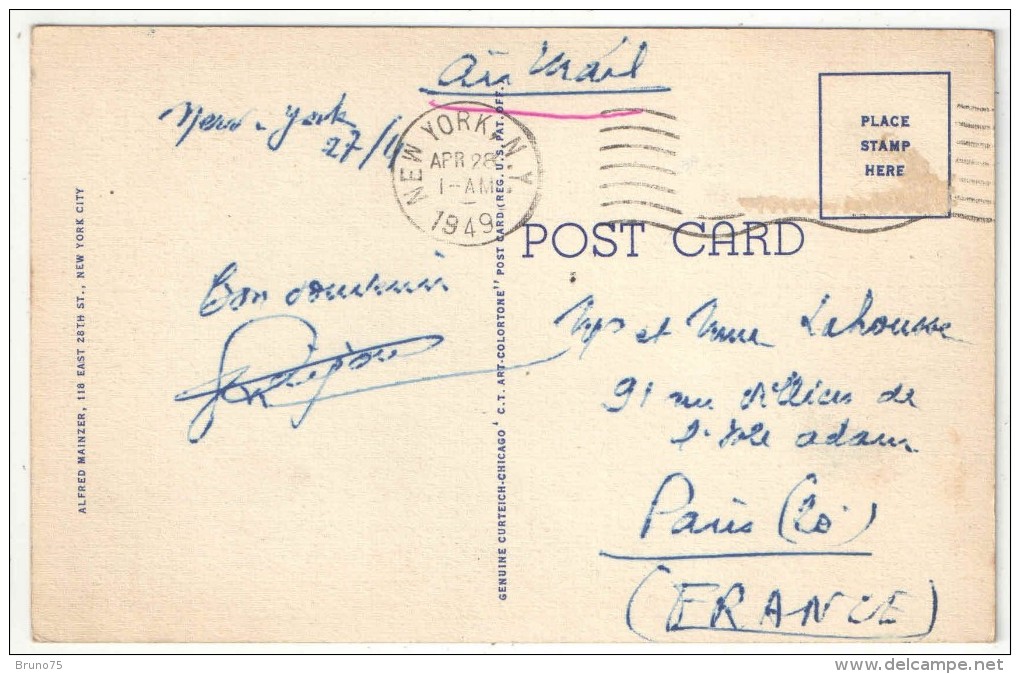 Air Mail
New-York
27/4
NEW YORK, N.Y.
APR 28
1-AM
1949
PLACE
STAMP
HERE
POST CARD
Bon souvenir
Mr et Mme Lahousse
91 rue Villiers de
l'Isle adam
Paris (20e)
(FRANCE)
ALFRED MAINZER, 118 EAST 28TH ST., NEW YORK CITY
GENUINE CURTEICH-CHICAGO "C.T. ART-COLORTONE" POST CARD (REG. U.S. PAT. OFF.)
Bruno75
www.delcampe.net